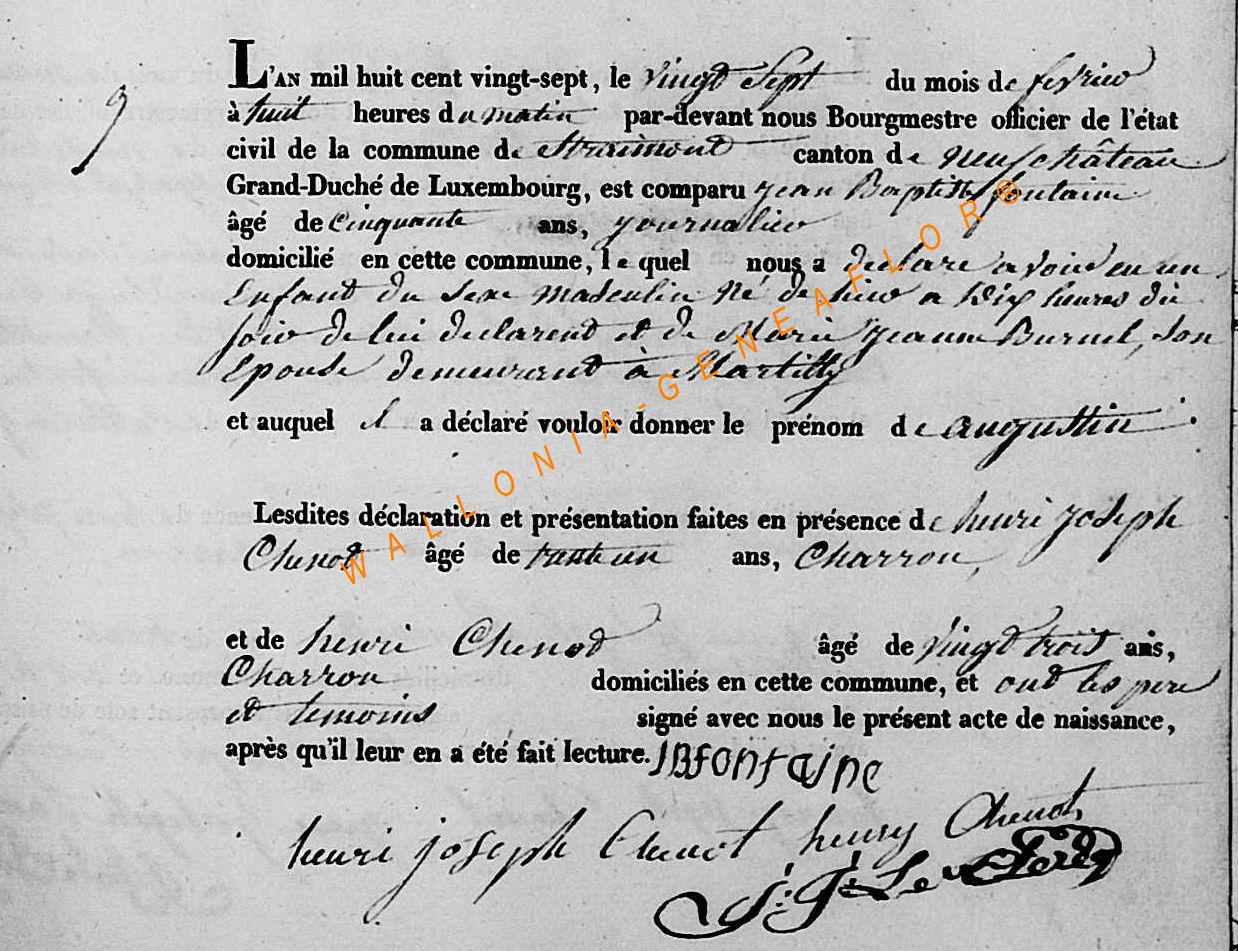 9
L'AN mil huit cent vingt-sept, le vingt Sept du mois de fevrier
à huit heures du matin par-devant nous Bourgmestre officier de l'état
civil de la commune de Straimont canton de neufchâteau
Grand-Duché de Luxembourg, est comparu jean Baptiste fontaine
âgé de cinquante ans, journalier
domicilié en cette commune, le quel nous a declare avoir eu un
Enfant du Sexe masculin Né de hier a Dix heures du
soir de lui declarent et de Marie jeanne Burnel, Son
Epouse demeurant à Martilly
et auquel il a déclaré vouloir donner le prénom de augustin
Lesdites déclaration et présentation faites en présence de henri joseph
Chenot âgé de trente un ans, Charron,
et de henri Chenot âgé de vingt trois ans,
Charron domiciliés en cette commune, et ont les pere
et temoins signé avec nous le présent acte de naissance,
après qu'il leur en a été fait lecture. JBfontaine
henri joseph Chenot henry Chenot
WALLONIA-GENEAFLOR®